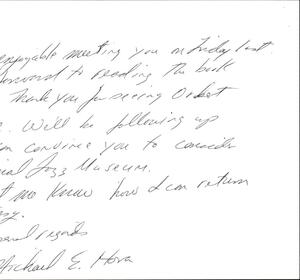 enjoyable meeting you on Friday last
forward to reading the book
Thank you for seeing
Will be following up
convince you to consider
Jazz Museum.
me know how I can return
regards
Michael E.